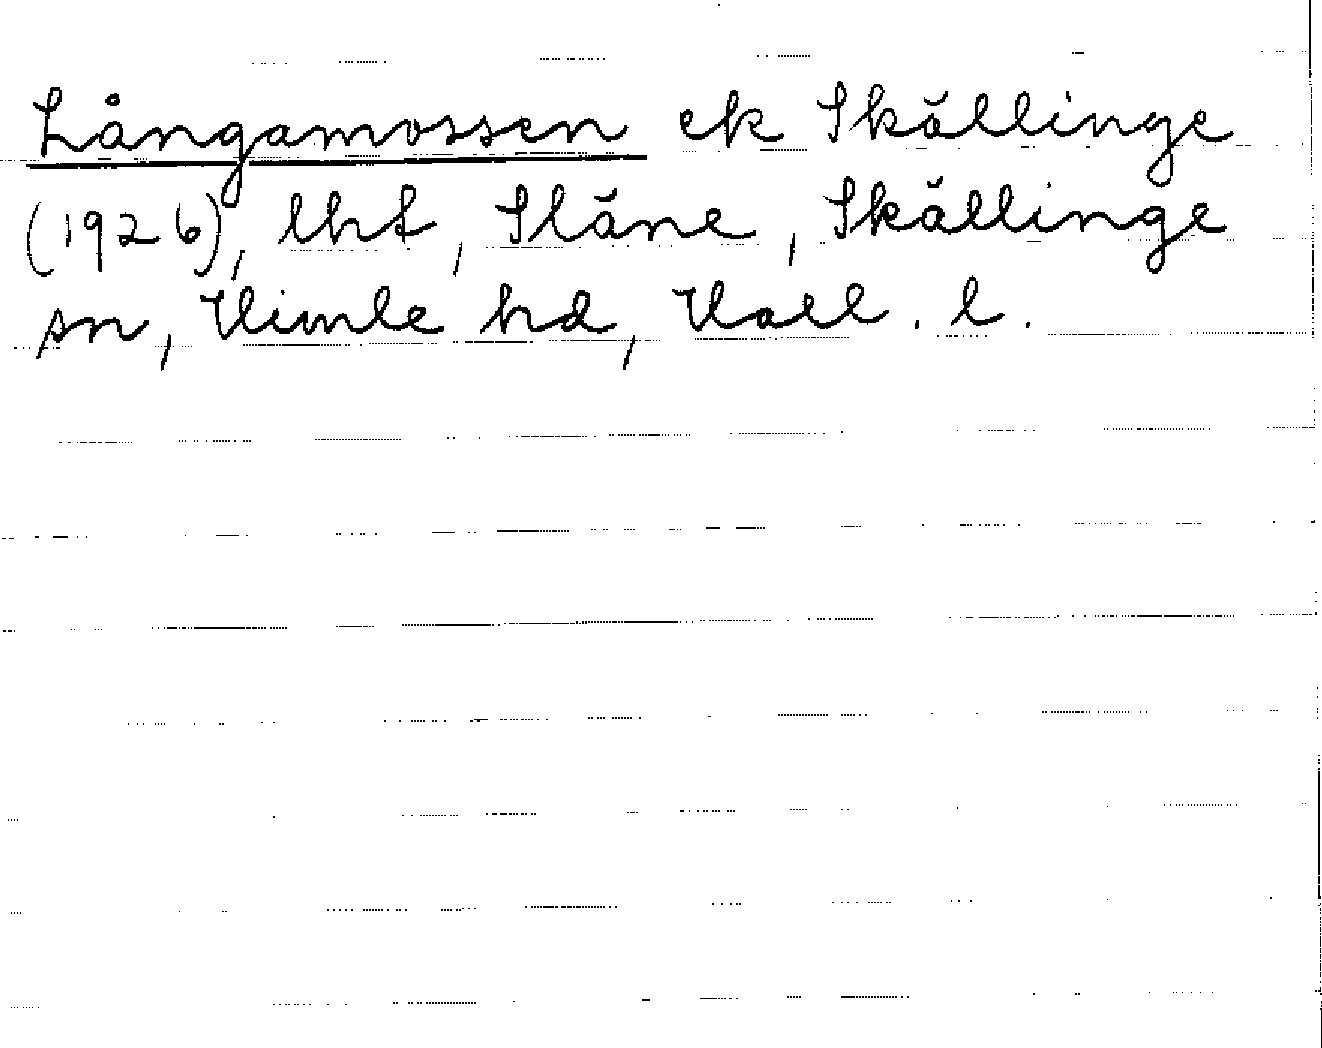 Långamossen ek Skällinge
(1926), lht, Släne, Skällinge
sn, Himle hd, Hall. l.